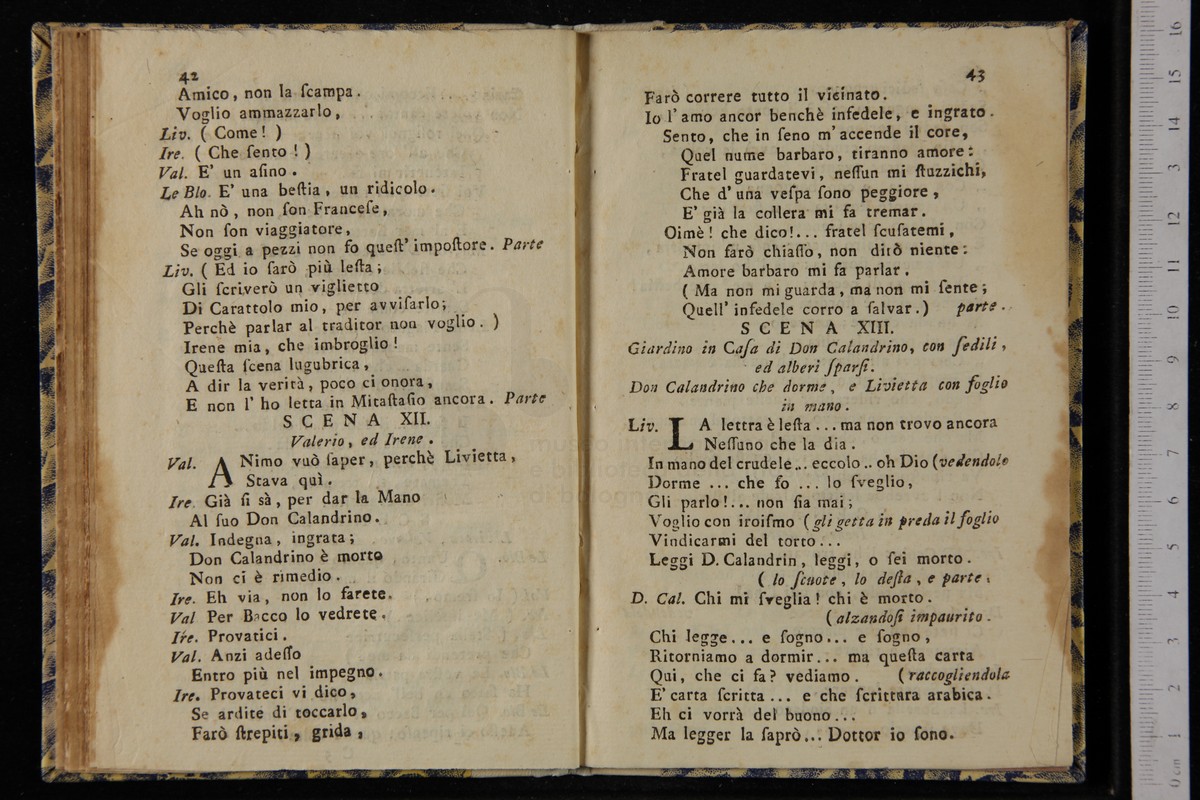 42
Amico, non la ſcampa.
Voglio ammazzarlo,
Liv. ( Come! )
Ire. ( Che ſento ! )
Val. E' un aſino .
Le Blo. E' una beſtia , un ridicolo.
Ah nò , non ſon Franceſe,
Non ſon viaggiatore,
Se oggi a pezzi non fo queſt' impoſtore. Parte
Liv. ( Ed io ſarò più leſta ;
Gli ſcriverò un viglietto
Di Carattolo mio, per avviſarlo;
Perchè parlar al traditor non voglio . )
Irene mia, che imbroglio !
Queſta ſcena lugubrica ,
A dir la verità , poco ci onora ,
E non l' ho letta in Mitaſtaſio ancora. Parte
SCENA XII.
Valerio, ed Irene .
Val. ANimo vuò ſaper, perchè Livietta,
Stava quì.
Ire Già ſi sà , per dar la Mano
Al ſuo Don Calandrino.
Val. Indegna, ingrata ;
Don Calandrino è morto
Non ci è rimedio .
Ire. Eh via , non lo farete.
Val Per Bacco lo vedrete .
Ire. Provatici .
Val. Anzi adeſſo
Entro più nel impegno.
Ire. Provateci vi dico,
Se ardite di toccarlo,
Farò ſtrepiti , grida ,
43
Farò correre tutto il vicinato.
Io l' amo ancor benchè infedele, e ingrato.
Sento, che in ſeno m' accende il core,
Quel nume barbaro, tiranno amore:
Fratel guardatevi, neſſun mi ſtuzzichi,
Che d' una veſpa ſono peggiore ,
E' già la collera mi fa tremar.
Oimè ! che dico!... fratel ſcuſatemi ,
Non farò chiaſſo, non dirò niente:
Amore barbaro mi fa parlar .
( Ma non mi guarda , ma non mi ſente ;
Quell' infedele corro a ſalvar . ) parte .
SCENA XIII.
Giardino in Caſa di Don Calandrino, con ſedili ,
ed alberi ſparſi.
Don Calandrino che dorme , e Livietta con foglio
in mano .
Liv. LA lettra è leſta ... ma non trovo ancora
Neſſuno che la dia .
In mano del crudele ... eccolo .. oh Dio (vedendolo
Dorme ... che fo ... lo ſveglio,
Gli parlo !... non ſia mai ;
Voglio con iroiſmo ( gli getta in preda il foglio
Vindicarmi del torto...
Leggi D. Calandrin , leggi, o ſei morto.
( lo ſcuote , lo deſta , e parte .
D. Cal. Chi mi ſveglia ! chi è morto.
( alzandoſi impaurito .
Chi legge... e ſogno... e ſogno ,
Ritorniamo a dormir... ma queſta carta
Qui, che ci fa? vediamo . ( raccogliendola
E' carta ſcritta ... e che ſcrittura arabica.
Eh ci vorrà del buono...
Ma legger la ſaprò... Dottor io ſono.